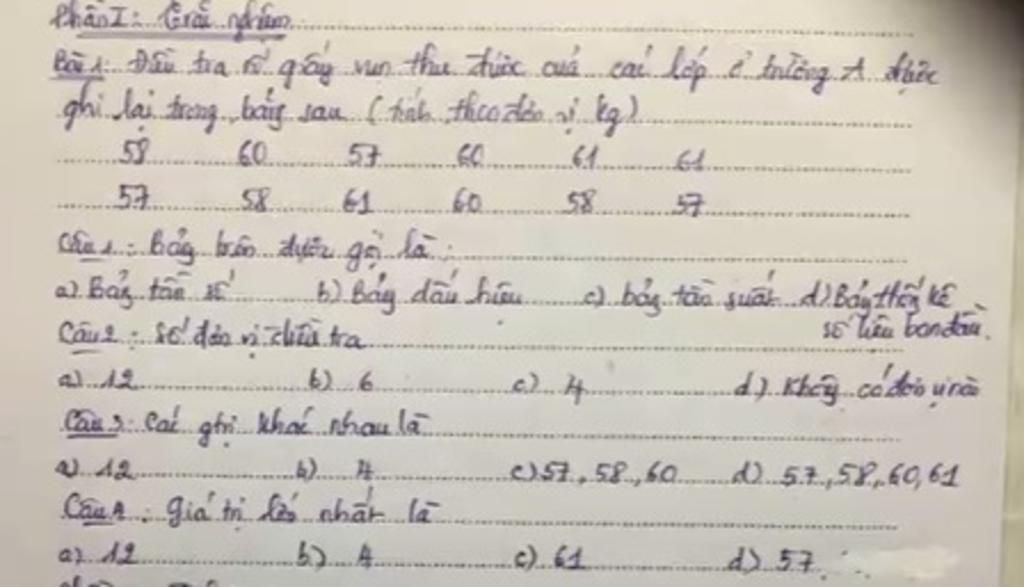 Phần I: Trắc nghiệm
Bài 1: Điều tra số giấy vụn thu được của các lớp ở trường A được
ghi lại trong bảng sau (tính theo đơn vị kg)
58 60 57 60 61 61
57 58 61 60 58 57
Câu 1: Bảng trên được gọi là:
a) Bảng tần số b) Bảng dấu hiệu c) bảng tần suất d) Bảng thống kê
số liệu ban đầu.
Câu 2: số đơn vị điều tra
a) 12 b) 6 c) 4 d) Không có đơn vị nào
Câu 3: Các gtrị khác nhau là
a) 12 b) 4 c) 57, 58, 60 d) 57, 58, 60, 61
Câu 4: giá trị lớn nhất là
a) 12 b) 4 c) 61 d) 57